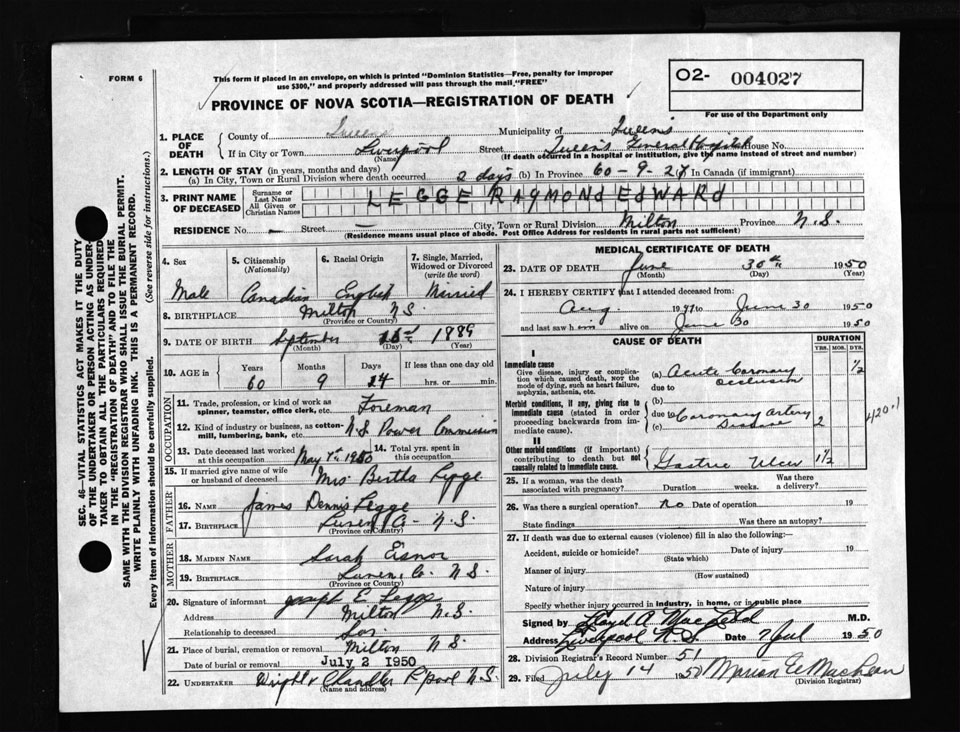 FORM 6
This form if placed in an envelope, on which is printed "Dominion Statistics—Free, penalty for improper
use $300," and properly addressed will pass through the mail "FREE"
PROVINCE OF NOVA SCOTIA—REGISTRATION OF DEATH
O2- 004027
For use of the Department only
SEC. 46—VITAL STATISTICS ACT MAKES IT THE DUTY
OF THE UNDERTAKER OR PERSON ACTING AS UNDER-
TAKER TO OBTAIN ALL THE PARTICULARS REQUIRED
IN THE "REGISTRATION OF DEATH" AND TO FILE THE
SAME WITH THE DIVISION REGISTRAR WHO SHALL ISSUE THE BURIAL PERMIT.
WRITE PLAINLY WITH UNFADING INK. THIS IS A PERMANENT RECORD.
Every item of information should be carefully supplied. (See reverse side for instructions.)
1. PLACE OF DEATH
County of Queens Municipality of Queens
If in City or Town Liverpool Street Queens General Hospital House No.
(Name) (If death occurred in a hospital or institution, give the name instead of street and number)
2. LENGTH OF STAY (in years, months and days)
(a) In City, Town or Rural Division where death occurred 2 days (b) In Province 60-9- In Canada (if immigrant)
3. PRINT NAME OF DECEASED
Surname or Last Name
All Given or Christian Names
LEGGE RAYMOND EDWARD
RESIDENCE No. — Street — City, Town or Rural Division Milton Province N.S.
(Residence means usual place of abode. Post Office Address for residents in rural parts not sufficient)
4. Sex
5. Citizenship (Nationality)
6. Racial Origin
7. Single, Married, Widowed or Divorced (write the word)
Male Canadian English Married
8. BIRTHPLACE Milton N.S.
(Province or Country)
9. DATE OF BIRTH September 1889
(Month) (Day) (Year)
10. AGE in Years Months Days If less than one day old
60 9 14 hrs. or min.
OCCUPATION
11. Trade, profession, or kind of work as
spinner, teamster, office clerk, etc. Foreman
12. Kind of industry or business, as cotton-
mill, lumbering, bank, etc. N.S. Power Commission
13. Date deceased last worked
at this occupation May 1950
14. Total yrs. spent in
this occupation
15. If married give name of wife
or husband of deceased Mrs Bertha Legge
FATHER
16. NAME James Dennis Legge
17. BIRTHPLACE Lunen Co. N.S.
(Province or Country)
MOTHER
18. MAIDEN NAME Sarah Eisnor
19. BIRTHPLACE Lunen, Co. N.S.
(Province or Country)
20. Signature of informant Joseph E Legge
Address Milton N.S.
Relationship to deceased Son
21. Place of burial, cremation or removal Milton N.S.
Date of burial or removal July 2 1950
22. UNDERTAKER Wright & Chandler L'pool N.S.
(Name and address)
MEDICAL CERTIFICATE OF DEATH
23. DATE OF DEATH June 30th 1950
(Month) (Day) (Year)
24. I HEREBY CERTIFY that I attended deceased from:
Aug. to June 30 1950
and last saw him alive on June 30 1950
CAUSE OF DEATH
DURATION
YRS. MOS. DYS.
I
Immediate cause
Give disease, injury or compli-
cation which caused death, NOT the
mode of dying, such as heart failure,
asphyxia, asthenia, etc.
(a) Acute Coronary Occlusion 1/2
due to
Morbid conditions, if any, giving rise to
immediate cause (stated in order
proceeding backwards from im-
mediate cause).
(b)
due to
(c) Coronary Artery Disease 2
420.1
II
Other morbid conditions (if important)
contributing to death but not
causally related to immediate cause.
Gastric Ulcer 1 1/2
25. If a woman, was the death
associated with pregnancy? Duration weeks. Was there
a delivery?
26. Was there a surgical operation? no Date of operation 19
State findings Was there an autopsy?
27. If death was due to external causes (violence) fill in also the following:
Accident, suicide or homicide? Date of injury 19
(State which)
Manner of injury
(How sustained)
Nature of injury
Specify whether injury occurred in industry, in home, or in public place
Signed by Lloyd A MacLeod M.D.
Address Liverpool N.S. Date 7 Jul 1950
28. Division Registrar's Record Number 51
29. Filed July 14 1950 Marion E MacLean
(Division Registrar)